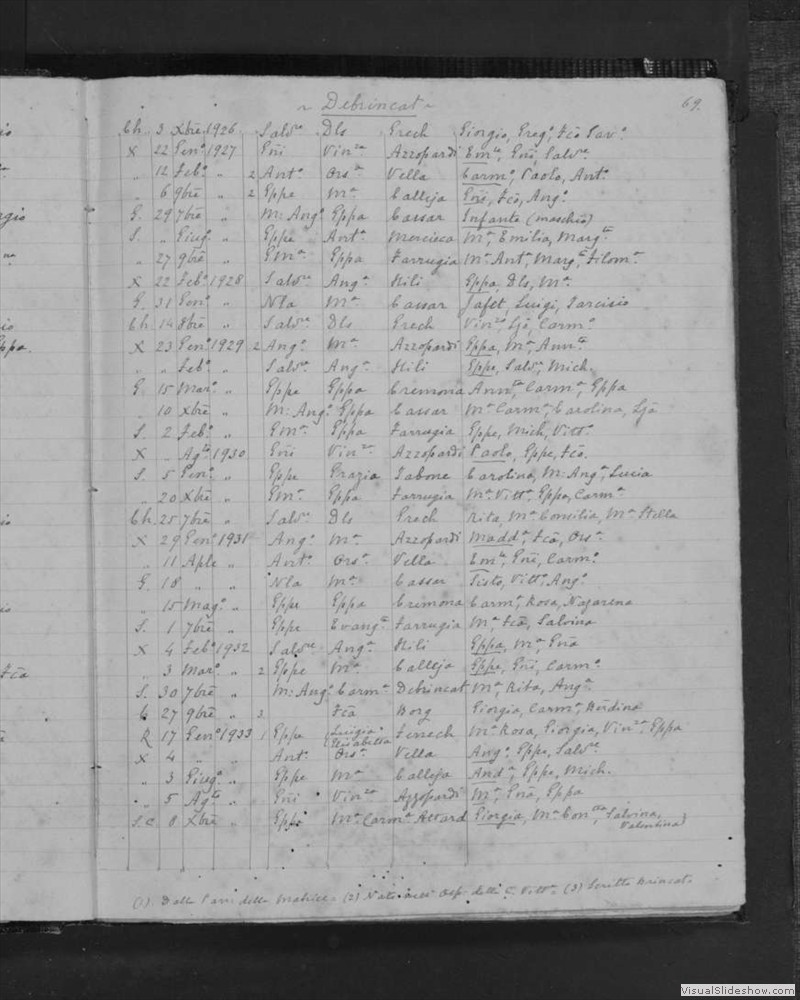 ~ Debrincat ~ 69.
Ch. 3 Xbre 1926 Salvre Dls Grech Giorgio, Gregº, Fcõ Savº
X 22 Genº 1927 Gñi Vinza Azzopardi Emle, Gñi, Salvre
" 12 Febº " 2 Antº Orsª Vella Carmº, Paolo, Antº
" 6 9bre " 2 Gppe Mª Calleja Gñi, Fcõ, Angº
G. 29 7bre " M: Angº Gppa Cassar Infante (maschio)
S. " Giugº " Gppe Antª Mercieca Mª, Emilia, Margta
" 27 9bre " Emº Gppa Farrugia Mª Antª, Margta, Filomª
X 22 Febº 1928 Salvre Angª Hili Gppa, Dls, Mª
G. 31 Genº " Nla Mª Cassar Jafet, Luigi, Tarcisio
Ch. 14 8bre " Salvre Dls Grech Vinza, Ljã, Carmª
X 23 Genº 1929 2 Angº Mª Azzopardi Gppa, Mª, Annta
" " Febº " Salvre Angª Hili Gppe, Salvre, Mich.
G. 15 Marº " Gppe Gppa Cremona Annta, Carmª, Gppa
" 10 Xbre " M: Angº Gppa Cassar Mª Carmª, Carolina, Ljã
S. 2 Febº " Emº Gppa Farrugia Gppe, Mich, Vittº
X " Agto 1930 Gñi Vinza Azzopardi Paolo, Gppe, Fcõ.
S. 5 Genº " Gppe Grazia Tabone Carolina, M: Angª, Lucia
" 20 Xbre " Emº Gppa Farrugia Mª Vittª, Gppa, Carmª
Ch. 25 7bre " Salvre Dls Grech Rita, Mª Consilia, Mª Stella
X 29 Genº 1931 Angº Mª Azzopardi Maddª, Fcã, Orsª
" 11 Aple " Antº Orsª Vella Emle, Gñi, Carmº
G. 18 " " Nla Mª Cassar Tisto, Vittº, Angº
" 15 Magº " Gppe Gppa Cremona Carmª, Rosa, Nazarena
S. 1 7bre " Gppe Evangta Farrugia Mª Fcã, Salvina
X 4 Febº 1932 Salvre Angª Hili Gppa, Mª, Gñã
" 3 Marº " 2 Gppe Mª Calleja Gppe, Gñi, Carmº
S. 30 7bre " M: Angº Carmª Debrincat Mª, Rita, Angª
C 27 9bre " 3 Fcã Borg Giorgia, Carmª, Berdina
R 17 Genº 1933 1 Gppe Luigia Elisabetta Fenech Mª Rosa, Giorgia, Vinza, Gppa
X 4 " " Antº Orsª Vella Angº, Gppe, Salvre
" 3 Giugº " Gppe Mª Calleja Andª, Gppe, Mich.
" 5 Agto " Gñi Vinza Azzopardi Mª, Gñã, Gppa
S.C 8 Xbre " Gppe Mª Carmª Attard Giorgia, Mª Concta, Salvina, Valentina
(1) Dalla Parr. della Matrice. (2) Nato nell' Osp. della C. Vittª (3) Scritto Brincat.
VisualSlideshow.com